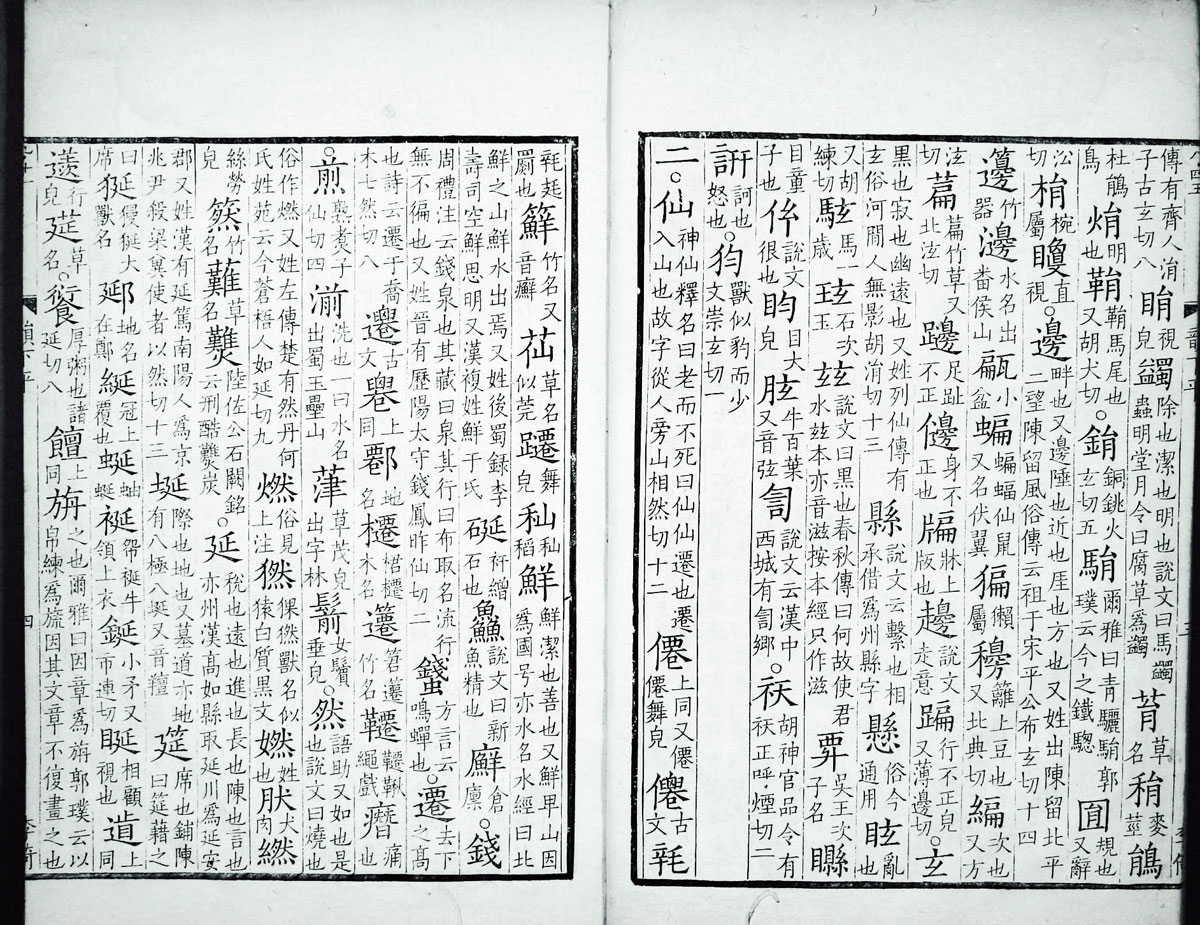 傳有齊人涓子古玄切八 睊視皃 蠲除也潔也明也說文曰馬蠲蟲明堂月令曰腐草爲蠲 草名 稍麥莖 鵑
杜鵑鳥 焆明也 鞙鞙馬尾也又胡犬切○鋗銅銚火玄切五 駽爾雅曰青驪駽郭璞云今之鐵驄 圓規也又辭
沿切 梋椀屬 矎直視○邊畔也又邊陲也近也厓也方也又姓出陳留北平二望陳留風俗傳云祖于宋平公布玄切十四
籩竹器 邉水名出番侯山 甂小盆 蝙蝙蝠仙鼠又名伏翼 猵獺屬 籬上豆也又北典切 編次也又方
泫切 萹萹竹草又北泫切 足趾不正 身不正也 牑牀上版也 說文走意 蹁行不正皃又薄邊切○玄
黑也寂也幽遠也又姓列仙傳有玄俗河閒人無影胡涓切十三 縣說文云繫也相承借爲州縣字 懸俗今通用 眩亂也
又胡練切 馬一歲 玹石次玉 玆說文曰黑也春秋傳曰何故使君水玆本亦音滋按本經只作滋 吳王次子名 矏
目童子也 伭說文很也 盷目大皃 胘牛百葉又音弦 訇說文云漢中西城有訇鄉○祆胡神官品令有祆正呼煙切二
訮訶也怒也○獸似豹而少文崇玄切一
二○仙神仙釋名曰老而不死曰仙仙遷也遷入山也故字從人旁山相然切十二 僊上同又僊僊舞皃 僲古文 㲎
㲎㲝罽也 籼竹名又音癬 草名似莞 躚舞皃 秈秈稻 鮮鮮潔也善也又鮮卑山因
鮮之山鮮水出焉又姓後蜀錄李壽司空鮮思明又漢複姓鮮于氏 硟衦繒石也 鱻說文曰新魚精也 廯倉廩○錢
周禮注云錢泉也其藏曰泉其行曰布取名流行無不徧也又姓晉有歷陽太守錢鳳昨仙切二 方言云鳴蟬也○遷去下之高
也詩云遷于喬木七然切八 古文 䙴上同 地名 櫏桾櫏木名 䉦䇞䉦竹名 韆韆鞦繩戲 痛也
○煎熟煑子仙切四 湔洗也一曰水名出蜀玉壘山 草茂皃出字林 鬋女鬢垂皃○然語助又如也是也說文曰燒也
俗作燃又姓左傳楚有然丹何氏姓苑云今蒼梧人如延切九 燃俗見上注 猓㹞獸名似猨白質黑文 姓也 肰犬肉 繎
絲勞皃 竹名 草名 陸佐公石闕銘云刑酷炭○延稅也遠也進也長也陳也言也亦州漢高如縣取延川爲延安
郡又姓漢有延篤南陽人爲京兆尹殺梁冀使者以然切十三 埏際也地也又墓道亦地有八極八埏又音羶 筵席也鋪陳曰筵藉之
曰席 狿獌狿大獸名 郔地名在鄭 綖冠上覆也 蜒蚰蜒 裷牛領上衣 鋋小矛又市連切 相顧視也 同上
遾行皃 莚草名○飦厚粥也諸延切八 饘上同 旃之也爾雅曰因章爲旃郭璞云以帛練爲旒因其文章不復畫之也